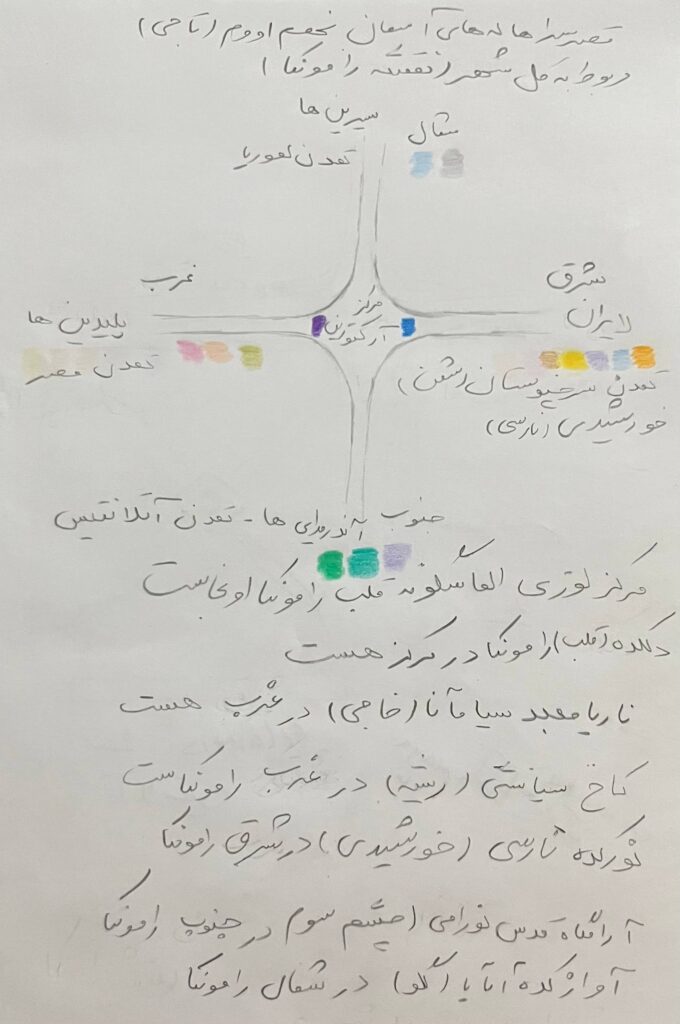 آسمان نجم اووم (تاجی)
مربوط به کل شهر (نقشه رامونکا)
سیرین ها
شمال
تمدن لموریا
غرب
شرق
لایران
مرکز
آرکتورین
پلیدین ها
تمدن مصر
تمدن سرخپوستان
خورشیدی (نارسی)
جنوب آندرومدایی ها - تمدن آتلانتیس
مرکز نوری الفاگلونه قلب رامونکا اونجاست
دلکده (قلب) رامونکا در مرکز هست
ناریا معبد سیامآنا (خاجی) در غرب هست
کاخ سیانتی (ریشه) در غرب رامونکاست
نورکده نارسی (خورشیدی) در شرق رامونکا
آرامگاه قدس نورامی (چشم سوم) در جنوب رامونکا
آوازکده آتایا (گلو) در شمال رامونکا